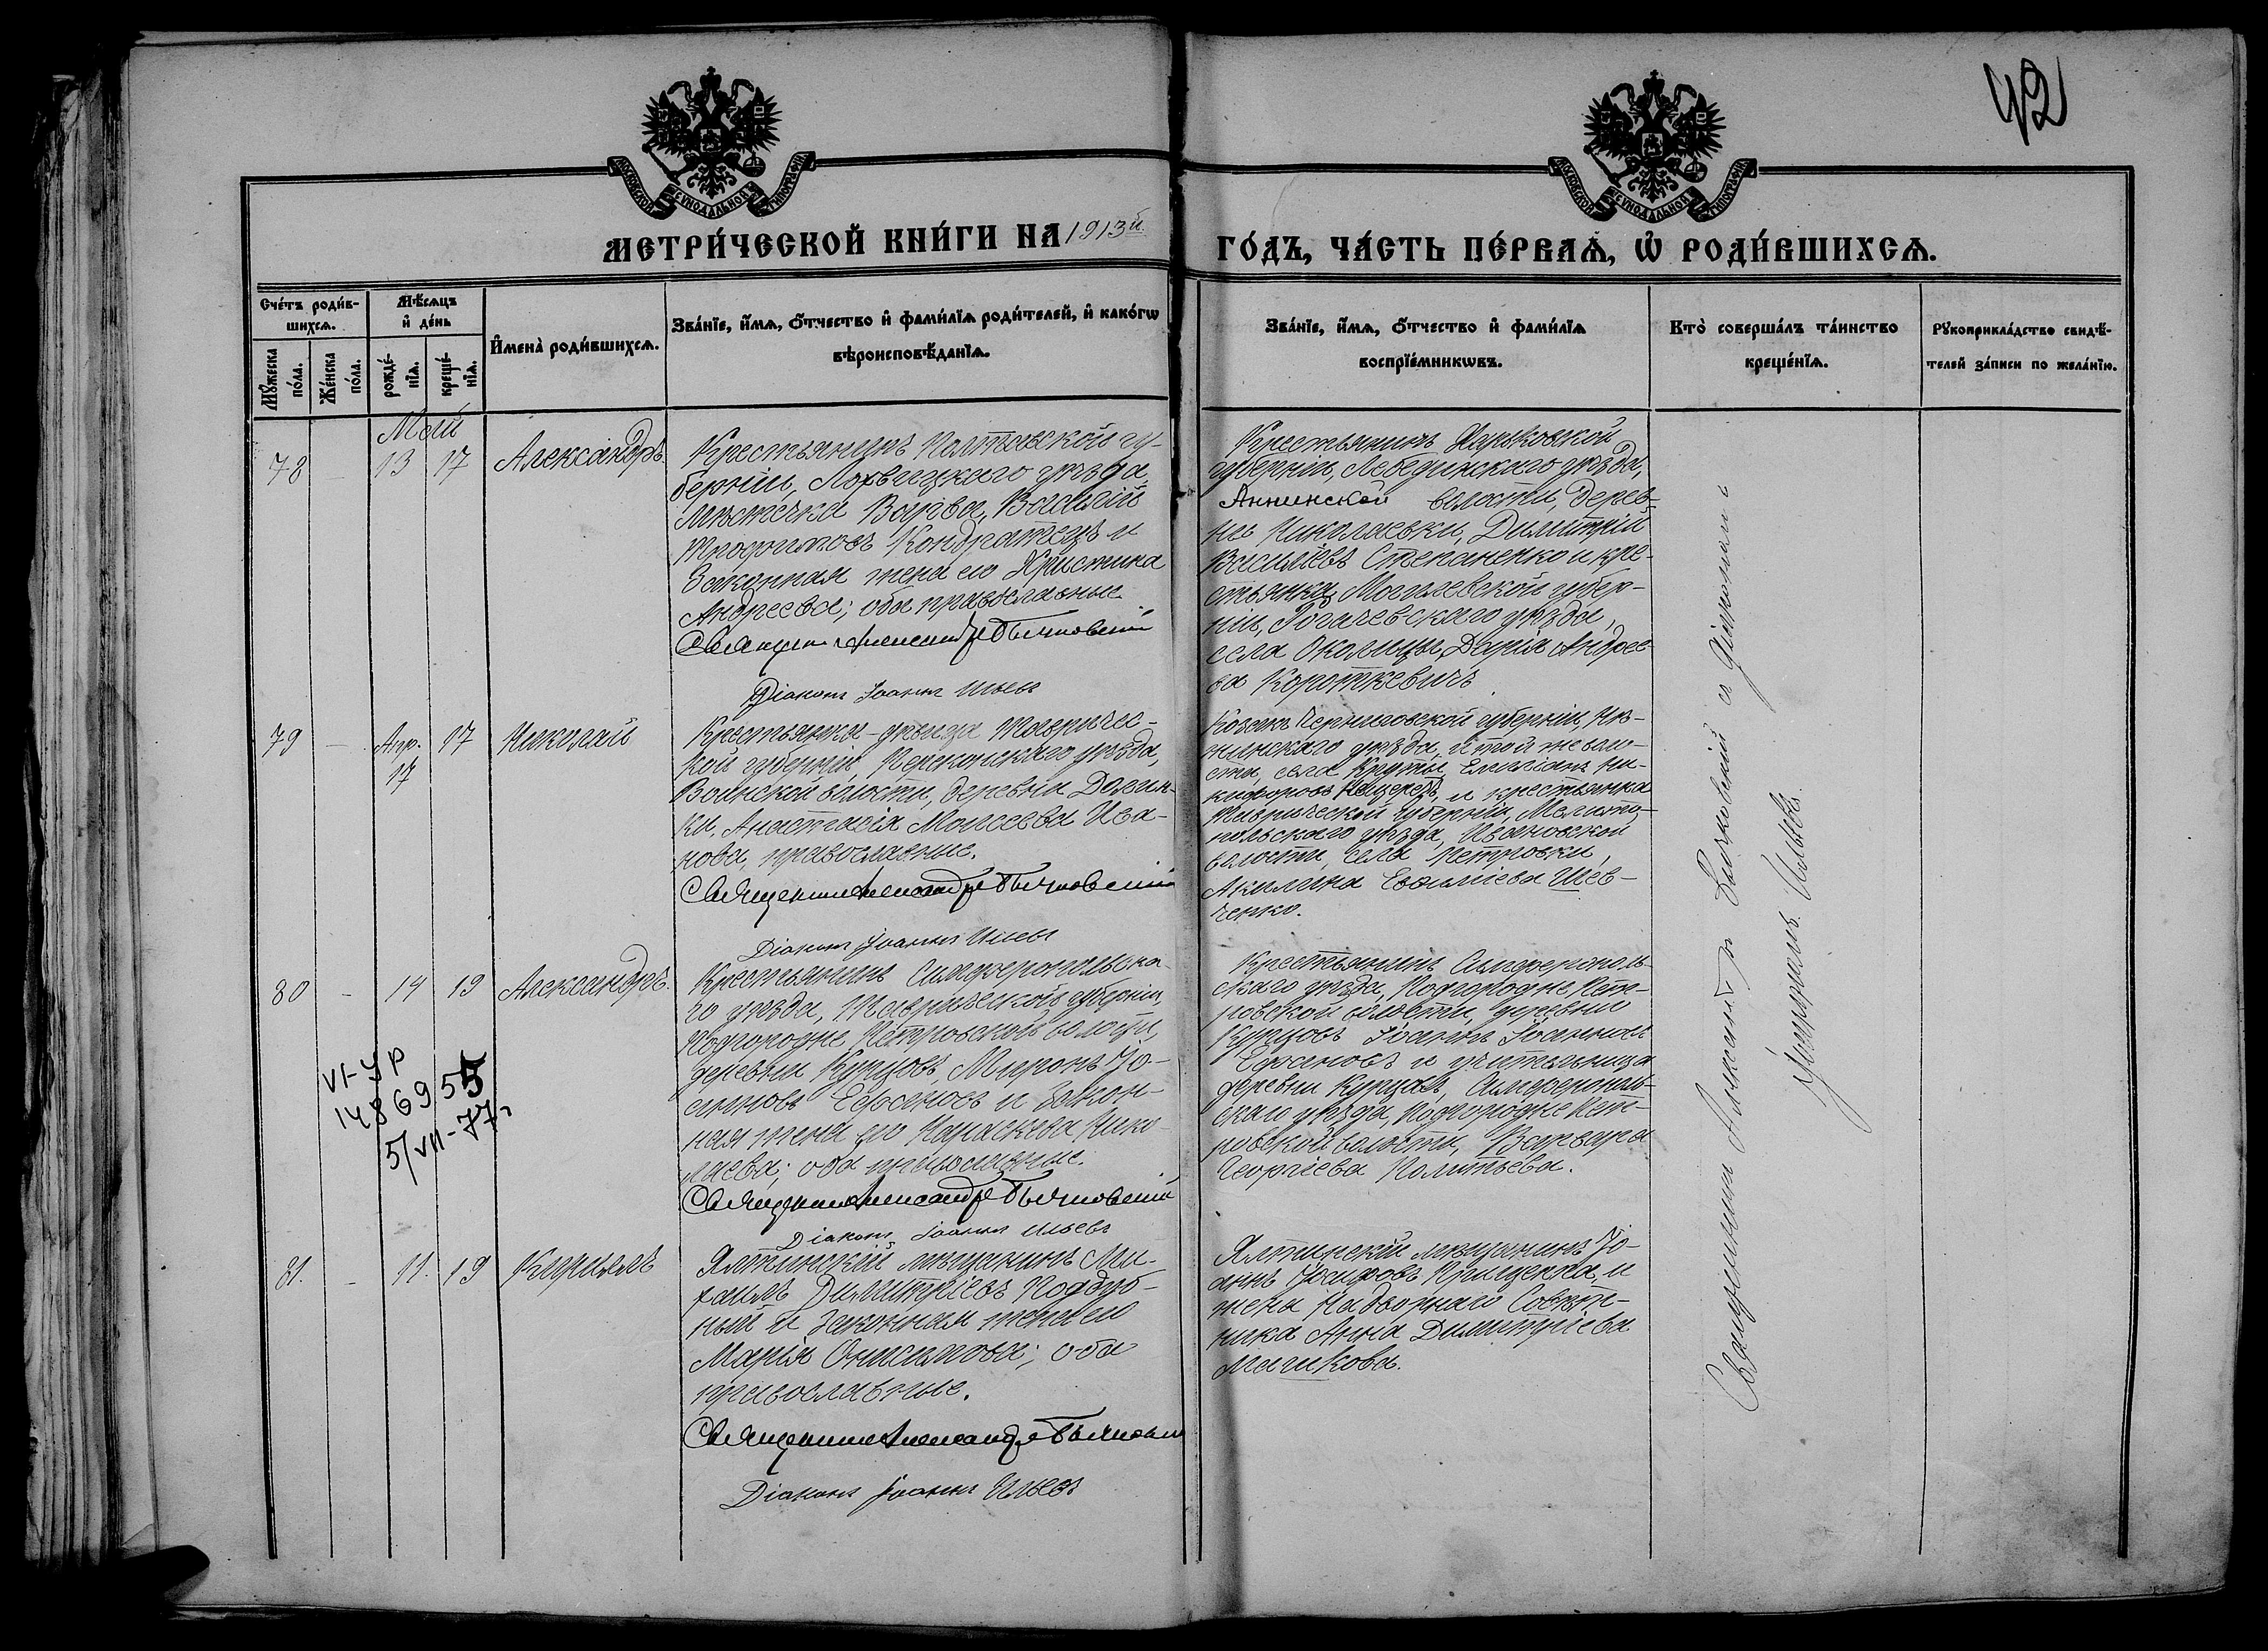 42
МОСКОВСКОЙ СѴНОДАЛЬНОЙ ТИПОГРАФІИ
МОСКОВСКОЙ СѴНОДАЛЬНОЙ ТИПОГРАФІИ
МЕТРИ́ЧЕСКОЙ КНИ́ГИ НА 1913й. ГО́ДЪ, ЧА́СТЬ ПЕ́РВАѦ, Ѽ РОДИ́ВШИХСѦ.
Сче́тъ роди́в-
шихсѧ.
Мꙋ́жеска по́ла.
Же́нска по́ла.
Мѣ́сѧцъ и҆ де́нь
рожде́-
нїѧ.
креще́-
нїѧ.
И҆мена̀ роди́вшихсѧ.
Зва́нїе, и҆́мѧ, ѻ҆́тчество и҆ фами́лїѧ роди́телей, и҆ како́гѡ
вѣроисповѣ́данїѧ.
Зва́нїе, и҆́мѧ, ѻ҆́тчество и҆ фами́лїѧ
воспрїе́мникѡвъ.
Кто̀ соверша́лъ та́инство
креще́нїѧ.
Рꙋкоприкла́дство свидѣ́-
телей за́писи по жела́нїю.
Май
78 - 13 17 Александръ.
Крестьянинъ Полтавской гу-
берніи, Лохвицкаго уѣзда,
мѣстечка Варвы, Василій
Трофимовъ Кондратецъ и
законная жена его Христина
Андреева; оба православные
Священникъ Александръ Бычковскій
Діаконъ Іоаннъ Ильевъ
Крестьянинъ Харьковской
губерніи, Лебединскаго уѣзда,
Аннинской волости, дерев-
ни Николаевки, Димитрій
Василіевъ Степаненко и кре-
стьянка Могилевской губер-
ніи, Рогачевскаго уѣзда,
села Околицы, Дарія Андрее-
ва Короткевичъ
79 - Апр. 17 17 Николай
Крестьянка-дѣвица Тавричес-
кой губерніи, Перекопскаго уѣзда,
Воинской волости, деревни
Анастасія Моисеева Ива-
нова, православные.
Священникъ Александръ Бычковскій
Діаконъ Іоаннъ Ильевъ
Козакъ Черниговской губерніи, Нѣ-
жинскаго уѣзда, и той же воло-
сти, села Круты, Емиліанъ Ни-
кифоровъ и крестьянка
Таврической губерніи, Мелито-
польскаго уѣзда, Ивановской
волости, села Петровки,
Акилина Шев-
ченко.
80 - 14 19 Александръ.
Крестьянинъ Симферопольска-
го уѣзда, Таврической губерніи,
Подгородне Петровской волости,
деревни Курцовъ, Миронъ Іо-
анновъ Ефановъ и закон-
ная жена его Параскева Нико-
лаева; оба православные.
Священникъ Александръ Бычковскій
Діаконъ Іоаннъ Ильевъ
Крестьянинъ Симферополь-
скаго уѣзда, Подгородне Пет-
ровской волости, деревни
Курцовъ Іоаннъ Іоанновъ
Ефановъ и учительница
деревни Курцовъ, Симферополь-
скаго уѣзда, Подгородне Пет-
ровской волости, Варвара
Георгіева Политьева.
VI-УР
14869 55
5/VII-77г
81. - 11. 19 Кириллъ
Ялтинскій мѣщанинъ Ми-
хаилъ Димитріевъ Поддуб-
ный и законная жена его
Марія Онисимова; оба
православные.
Священникъ Александръ Бычковскій
Діаконъ Іоаннъ Ильевъ
Ялтинскій мѣщанинъ Іо-
аннъ Іосифовъ Прищепа, и
жена Надворнаго Совѣт-
ника Анна Димитріева
Машкова.
Священникъ Александръ Бычковскій съ Діакономъ
Іоанномъ Ильевъ.